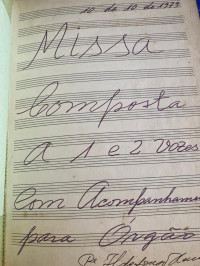 10 de 10 de 1979
Missa
Composta
a 1 e 2 Vozes
Com Acompanhame
para Órgão
Pe